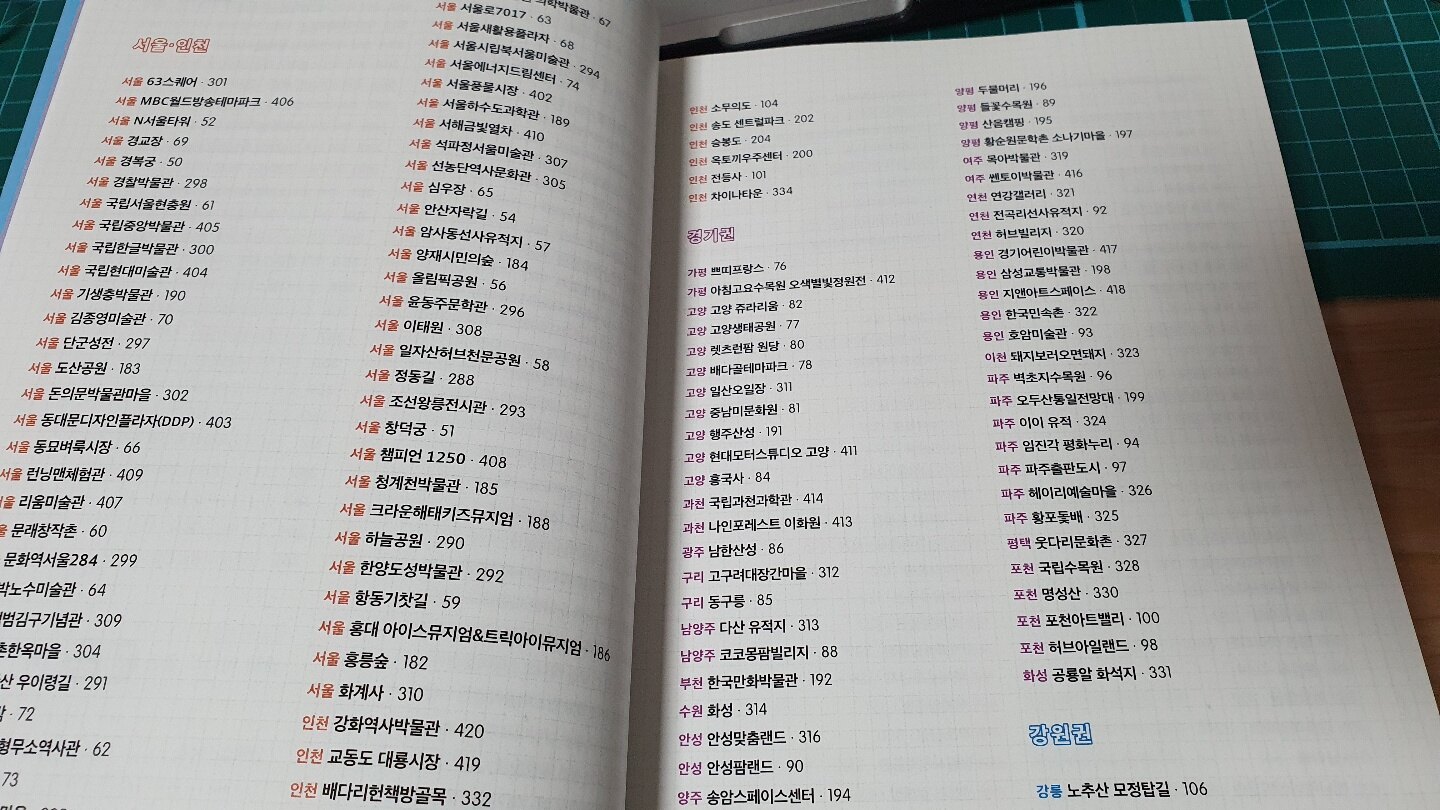 서울·인천
서울 63스퀘어 · 301
서울 MBC월드방송테마파크 · 406
서울 N서울타워 · 52
서울 경교장 · 69
서울 경복궁 · 50
서울 경찰박물관 · 298
서울 국립서울현충원 · 61
서울 국립중앙박물관 · 405
서울 국립한글박물관 · 300
서울 국립현대미술관 · 404
서울 기생충박물관 · 190
서울 김종영미술관 · 70
서울 단군성전 · 297
서울 도산공원 · 183
서울 돈의문박물관마을 · 302
서울 동대문디자인플라자(DDP) · 403
서울 동묘벼룩시장 · 66
서울 런닝맨체험관 · 409
서울 리움미술관 · 407
울 문래창작촌 · 60
문화역서울284 · 299
박노수미술관 · 64
범김구기념관 · 309
촌한옥마을 · 304
산 우이령길 · 291
· 72
형무소역사관 · 62
73
의학박물관 · 67
서울 서울로7017 · 63
서울 서울새활용플라자 · 68
서울 서울시립북서울미술관 · 294
서울 서울에너지드림센터 · 74
서울 서울풍물시장 · 402
서울 서울하수도과학관 · 189
서울 서해금빛열차 · 410
서울 석파정서울미술관 · 307
서울 선농단역사문화관 · 305
서울 심우장 · 65
서울 안산자락길 · 54
서울 암사동선사유적지 · 57
서울 양재시민의숲 · 184
서울 올림픽공원 · 56
서울 윤동주문학관 · 296
서울 이태원 · 308
서울 일자산허브천문공원 · 58
서울 정동길 · 288
서울 조선왕릉전시관 · 293
서울 창덕궁 · 51
서울 챔피언 1250 · 408
서울 청계천박물관 · 185
서울 크라운해태키즈뮤지엄 · 188
서울 하늘공원 · 290
서울 한양도성박물관 · 292
서울 항동기찻길 · 59
서울 홍대 아이스뮤지엄&트릭아이뮤지엄 · 186
서울 홍릉숲 · 182
서울 화계사 · 310
인천 강화역사박물관 · 420
인천 교동도 대룡시장 · 419
인천 배다리헌책방골목 · 332
인천 소무의도 · 104
인천 송도 센트럴파크 · 202
인천 승봉도 · 204
인천 옥토끼우주센터 · 200
인천 전등사 · 101
인천 차이나타운 · 334
경기권
가평 쁘띠프랑스 · 76
가평 아침고요수목원 오색별빛정원전 · 412
고양 고양 쥬라리움 · 82
고양 고양생태공원 · 77
고양 렛츠런팜 원당 · 80
고양 배다골테마파크 · 78
고양 일산오일장 · 311
고양 중남미문화원 · 81
고양 행주산성 · 191
고양 현대모터스튜디오 고양 · 411
고양 흥국사 · 84
과천 국립과천과학관 · 414
과천 나인포레스트 이화원 · 413
광주 남한산성 · 86
구리 고구려대장간마을 · 312
구리 동구릉 · 85
남양주 다산 유적지 · 313
남양주 코코몽팜빌리지 · 88
부천 한국만화박물관 · 192
수원 화성 · 314
안성 안성맞춤랜드 · 316
안성 안성팜랜드 · 90
양주 송암스페이스센터 · 194
양평 두물머리 · 196
양평 들꽃수목원 · 89
양평 산음캠핑 · 195
양평 황순원문학촌 소나기마을 · 197
여주 목아박물관 · 319
여주 쎈토이박물관 · 416
연천 연강갤러리 · 321
연천 전곡리선사유적지 · 92
연천 허브빌리지 · 320
용인 경기어린이박물관 · 417
용인 삼성교통박물관 · 198
용인 지앤아트스페이스 · 418
용인 한국민속촌 · 322
용인 호암미술관 · 93
이천 돼지보러오면돼지 · 323
파주 벽초지수목원 · 96
파주 오두산통일전망대 · 199
파주 이이 유적 · 324
파주 임진각 평화누리 · 94
파주 파주출판도시 · 97
파주 헤이리예술마을 · 326
파주 황포돛배 · 325
평택 웃다리문화촌 · 327
포천 국립수목원 · 328
포천 명성산 · 330
포천 포천아트밸리 · 100
포천 허브아일랜드 · 98
화성 공룡알 화석지 · 331
강원권
강릉 노추산 모정탑길 · 106